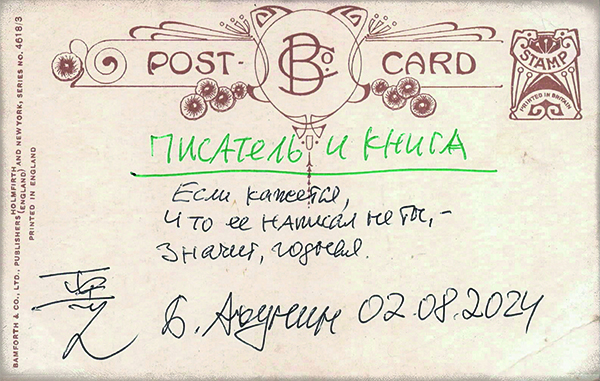 POST-
B Co.
CARD
STAMP
PRINTED IN BRITAIN
BAMFORTH & CO., LTD., PUBLISHERS HOLMFIRTH (ENGLAND) AND NEW YORK, SERIES NO. 4618/3
PRINTED IN ENGLAND
ПИСАТЕЛЬ И КНИГА
Если кажется,
что ее написал не ты,-
значит, годная.
Б. Акунин 02.08.2024